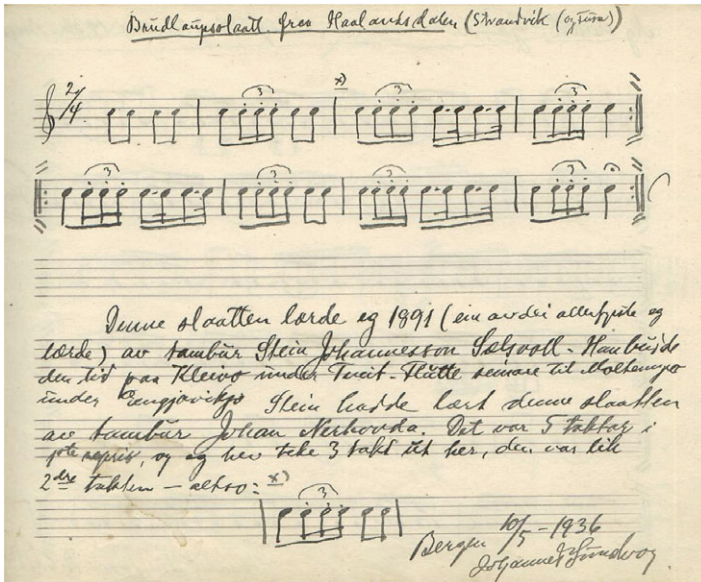 Brudlaupsslaatt fraa Haalandsdalen (Strandvik (og Fusa))
2/4
3 x) 3 3
3 3 3 3
Denne slaatten lærde eg 1891 (ein av dei allerfyrste eg
lærde) av tambur Stein Johannesson Sælsvoll. Han budde
den tid paa Kleivo under Tveit. Flutte seinare til
under Stein hadde lært denne slaatten
av tambur Johan Nerhovda. Det var 5 taktar i
fyrste repris, og eg hev teke 3 takt ut her, den var lik
2dre takten – altso: x)
3
Bergen 10/5 – 1936
Johannes Sundvor